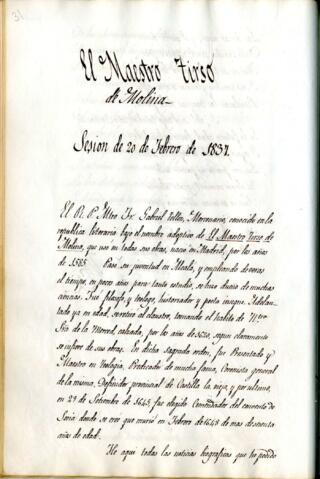 31
El Maestro Tirso
de Molina
Sesion de 20 de Febrero de 1837.
El R. P. Mtro Fr. Gabriel Tellez, Mercenario, conocido en la
republica literaria bajo el nombre adoptivo de El Maestro Tirso de
Molina, que uso en todas sus obras, nació en Madrid, por los años
de 1585. Pasó su juventud en Alcala, y empleando de veras
el tiempo, en pocos años para tanto estudio, se hizo dueño de muchas
ciencias. Fue filosofo, y teologo, historiador y poeta insigne. Adelan-
tada ya en edad, se retiró al claustro, tomando el habito de Ntra
Sra de la Merced, calzada, por los años de 1620, segun claramente
se infiere de sus obras. En dicha sagrada orden, fue Presentado y
Maestro en Teologia, Predicador de mucha fama, Coronista general
de la misma, Definidor provincial de Castilla la vieja, y por ultimo,
en 29 de Setiembre de 1645, fue elegido Comendador del convento de
Soria donde se cree que murió en Febrero de 1648 de mas de sesenta
años de edad.
He aqui todas las noticias biograficas que he podido